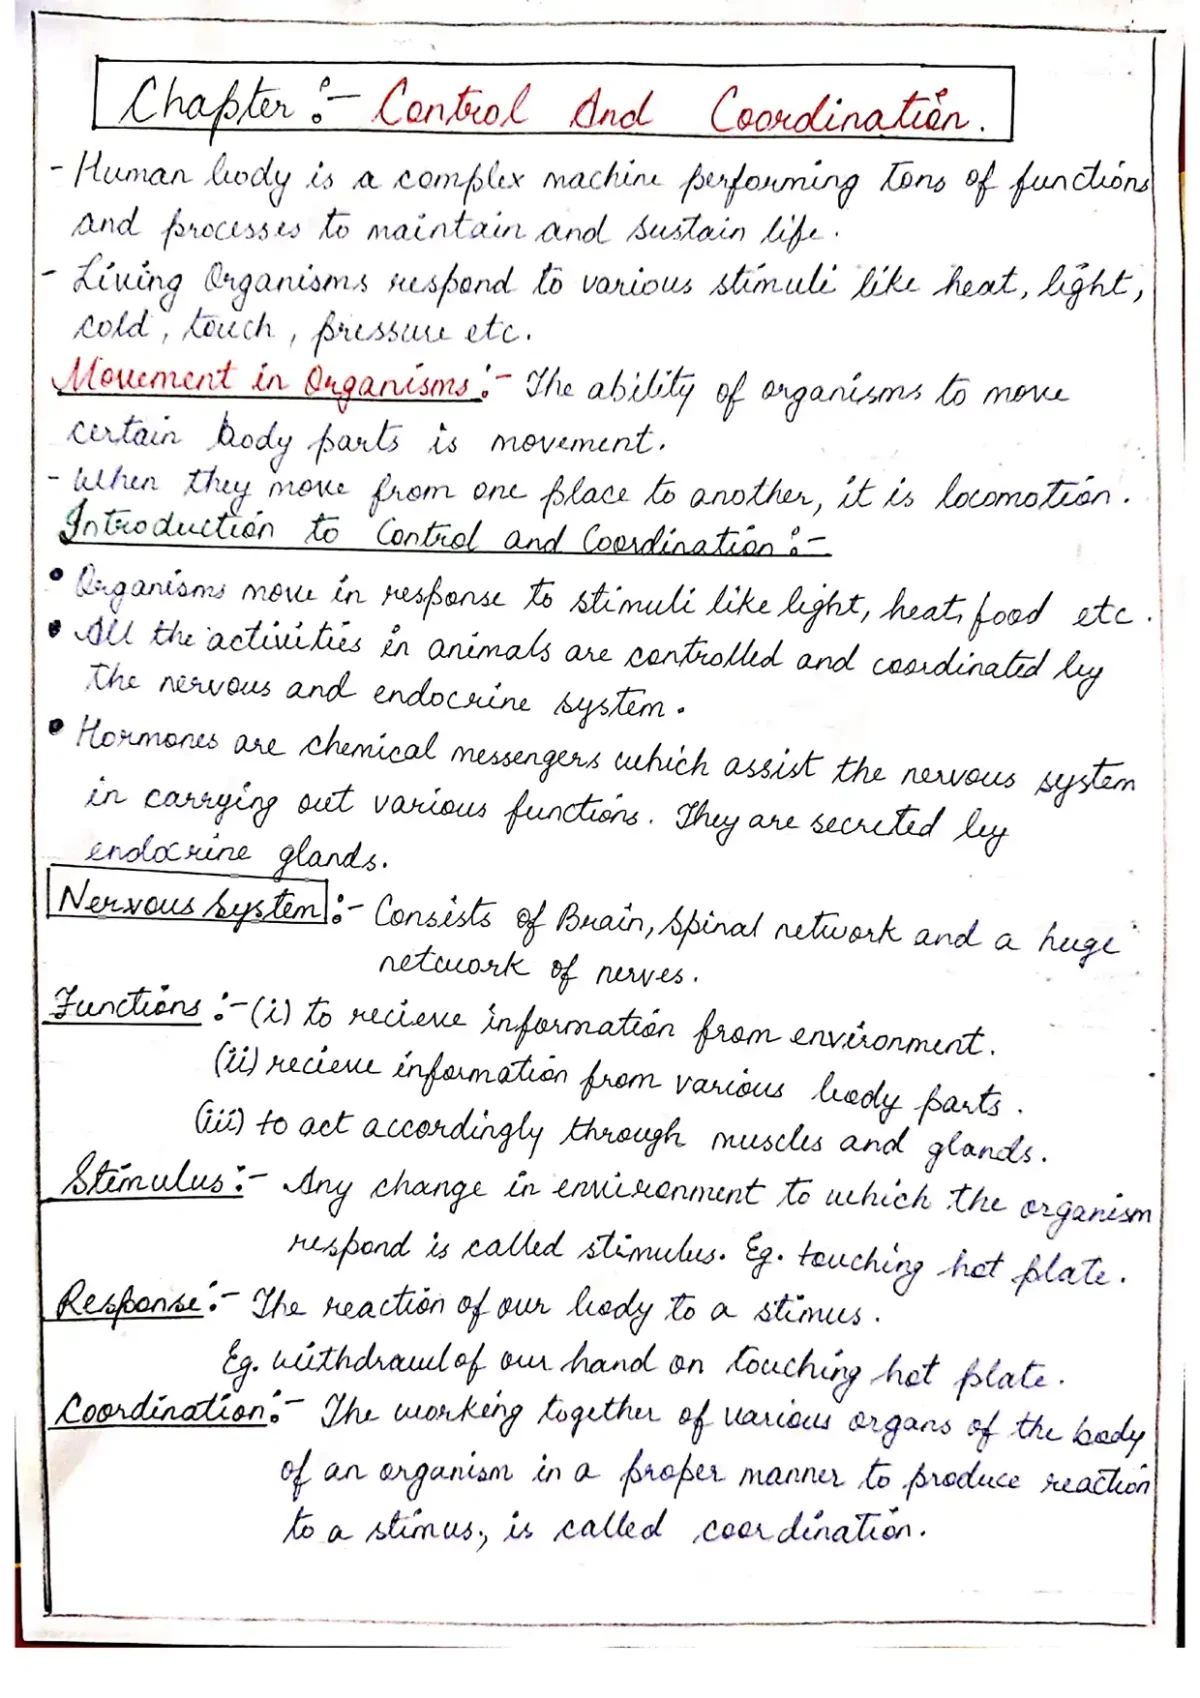 Chapter :- Control And Coordination.
- Human body is a complex machine performing tons of functions
and processes to maintain and sustain life.
- Living Organisms respond to various stimuli like heat, light,
cold, touch, pressure etc.
Movement in Organisms :- The ability of organisms to move
certain body parts is movement.
- When they move from one place to another, it is locomotion.
Introduction to Control and Coordination :-
• Organisms move in response to stimuli like light, heat, food etc.
• All the activities in animals are controlled and coordinated by
the nervous and endocrine system.
• Hormones are chemical messengers which assist the nervous system
in carrying out various functions. They are secreted by
endocrine glands.
Nervous System :- Consists of Brain, Spinal network and a huge
network of nerves.
Functions :- (i) to recieve information from environment.
(ii) recieve information from various body parts.
(iii) to act accordingly through muscles and glands.
Stimulus :- Any change in environment to which the organism
respond is called stimulus. Eg. touching hot plate.
Response :- The reaction of our body to a stimus.
Eg. withdrawl of our hand on touching hot plate.
Coordination :- The working together of various organs of the body
of an organism in a proper manner to produce reaction
to a stimus, is called coordination.